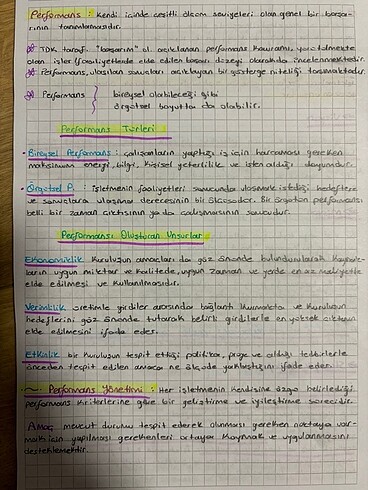 Performans : Kendi içinde çeşitli ölçüm seviyeleri olan genel bir başarı-
nın tanımlamasıdır.
TDK tarafı "başarım" ol. açıklanan performans kavramı, yürütülmekte
olan işler/faaliyetlerde elde edilen başarı düzeyi olarak da incelenmektedir.
Performans, ulaşılan sonuçları açıklayan bir gösterge niteliği taşımaktadır.
Performans } bireysel olabileceği gibi
örgütsel boyutta da olabilir.
Performans Türleri
Bireysel Performans : çalışanların yaptığı iş için harcaması gereken
maksimum enerji, bilgi, kişisel yeterlilik ve işten aldığı doyumdur.
Örgütsel P. : İşletmenin faaliyetleri sonucunda ulaşmak istediği hedeflere
ve sonuçlara ulaşma derecesinin bir
belli bir zaman çıktısının ya da çalışmasının sonucudur.
Performansı Oluşturan Unsurlar
Ekonomiklik Kuruluşun amaçları da göz önünde bulundurularak kaynak-
ların uygun miktar ve kalitede, uygun zaman ve yerde en az maliyetle
elde edilmesi ve kullanılmasıdır.
Verimlilik üretimle girdiler arasından bağlantı kurmakta ve kuruluşun
hedeflerini göz önünde tutarak belirli girdilerle en yüksek çıktının
elde edilmesini ifade eder.
Etkinlik bir kuruluşun tespit ettiği politika, proje ve aldığı tedbirlerle
önceden tespit edilen amaca ne ölçüde yaklaştığını ifade eder.
Performans Yönetimi : Her işletmenin kendisine özgü belirlediği
performans kriterlerine göre bir geliştirme ve iyileştirme sürecidir.
Amaç mevcut durumu tespit ederek olunması gereken noktaya var-
mak için yapılması gerekenleri ortaya koymak ve uygulanmasını
desteklemektir.